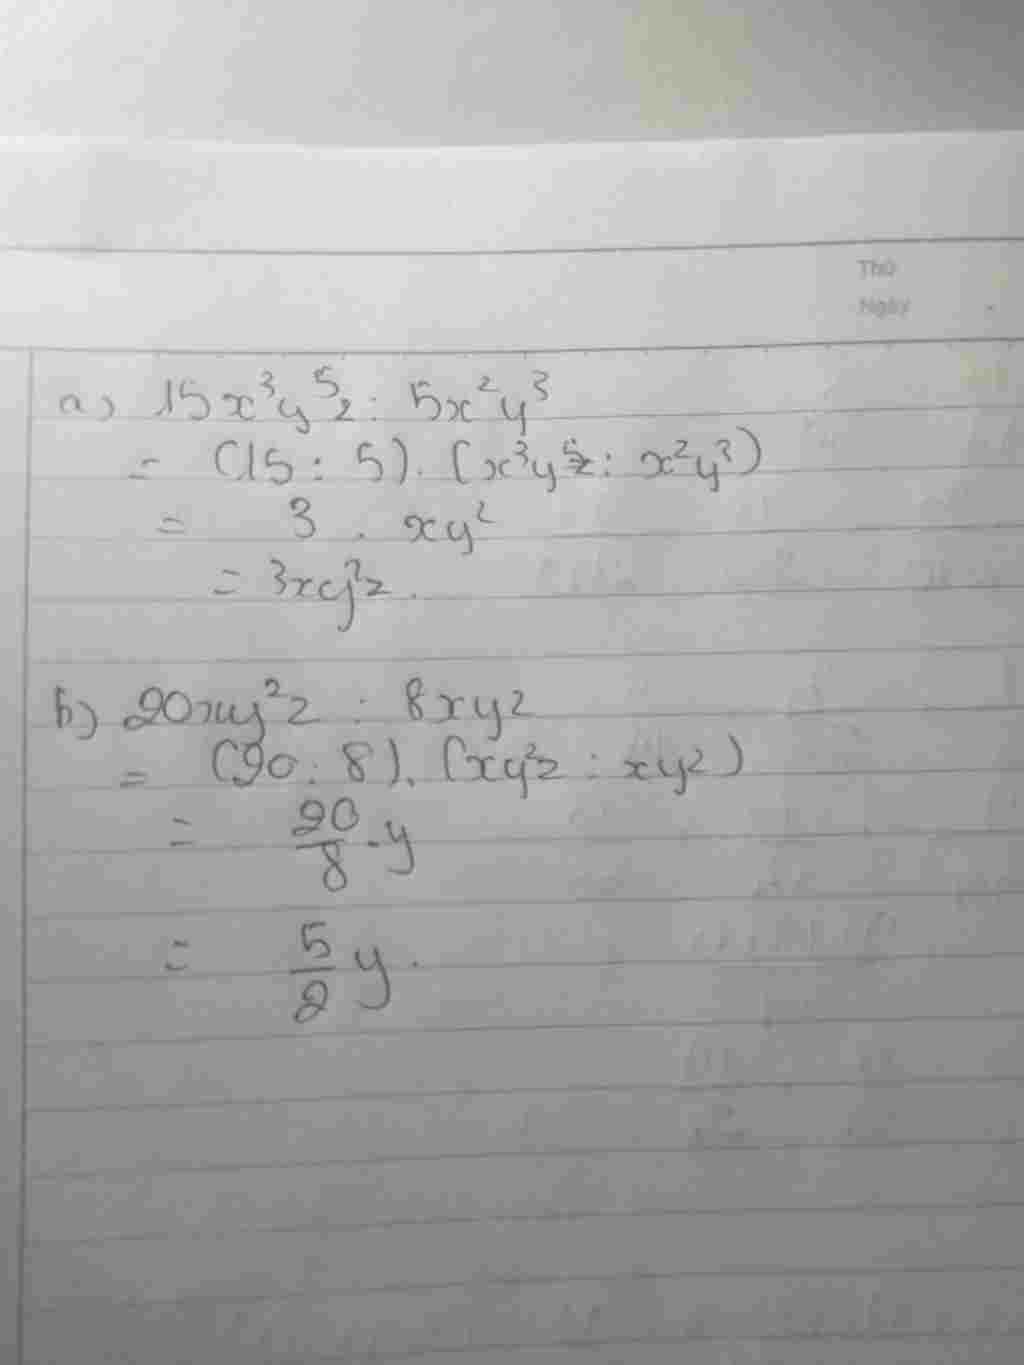 Thứ
Ngày
a) 15x³y⁵z : 5x²y³
= (15 : 5) . (x³y⁵z : x²y³)
= 3 . xy²
= 3xy²z.
b) 20xy²z : 8xyz
= (20 : 8) . (xy²z : xyz)
= 20/8 . y
= 5/2 y.